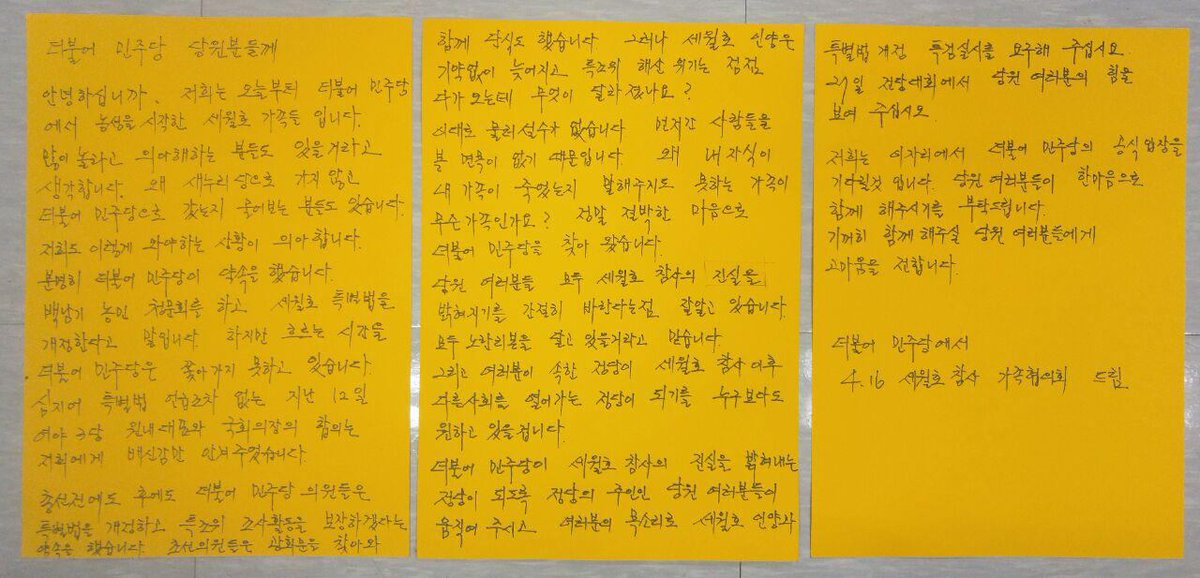 더불어 민주당 당원분들께
안녕하십니까. 저희는 오늘부터 더불어 민주당
에서 농성을 시작한 세월호 가족들 입니다.
많이 놀라고 의아해하는 분들도 있을거라고
생각합니다. 왜 새누리당으로 가지 않고
더불어 민주당으로 갔는지 물어보는 분들도 있습니다.
저희도 이렇게 와야하는 상황이 의아합니다.
분명히 더불어 민주당이 약속을 했습니다.
백남기 농민 청문회를 하고 세월호 특별법을
개정한다고 말입니다. 하지만 흐르는 시간을
더불어 민주당은 쫓아가지 못하고 있습니다.
심지어 특별법 언급조차 없는 지난 12일
여야 3당 원내대표와 국회의장의 합의는
저희에게 배신감만 안겨주었습니다.
총선전에도 후에도 더불어 민주당 의원들은
특별법을 개정하고 특조위 조사활동을 보장하겠다는
약속을 했습니다. 초선의원들은 광화문을 찾아와
함께 단식도 했습니다. 그러나 세월호 인양은
기약없이 늦어지고 특조위 해산 위기는 점점
다가 오는데 무엇이 달라졌나요?
이대로 물러설수가 없습니다. 먼저간 사람들을
볼 면목이 없기 때문입니다. 왜 내 자식이
내 가족이 죽었는지 말해주지도 못하는 가족이
무슨 가족인가요? 정말 절박한 마음으로
더불어 민주당을 찾아 왔습니다.
당원 여러분들 모두 세월호 참사의 진실을
밝혀지기를 간절히 바란다는점 잘알고 있습니다.
모두 노란리본을 달고 있을거라고 믿습니다.
그리고 여러분이 속한 정당이 세월호 참사 이후
다른사회를 열어가는 정당이 되기를 누구보다도
원하고 있을 겁니다.
더불어 민주당이 세월호 참사의 진실을 밝혀내는
정당이 되도록 정당의 주인인 당원 여러분들이
움직여 주시고 여러분의 목소리로 세월호 인양과
특별법 개정 특검실시를 요구해 주십시오.
27일 전당대회에서 당원 여러분의 힘을
보여 주십시오.
저희는 이자리에서 더불어 민주당의 공식입장을
기다릴것 입니다. 당원 여러분들이 한마음으로
함께 해주시기를 부탁드립니다.
기꺼히 함께 해주실 당원 여러분들에게
고마움을 전합니다.
더불어 민주당에서
4.16 세월호 참사 가족협의회 드림